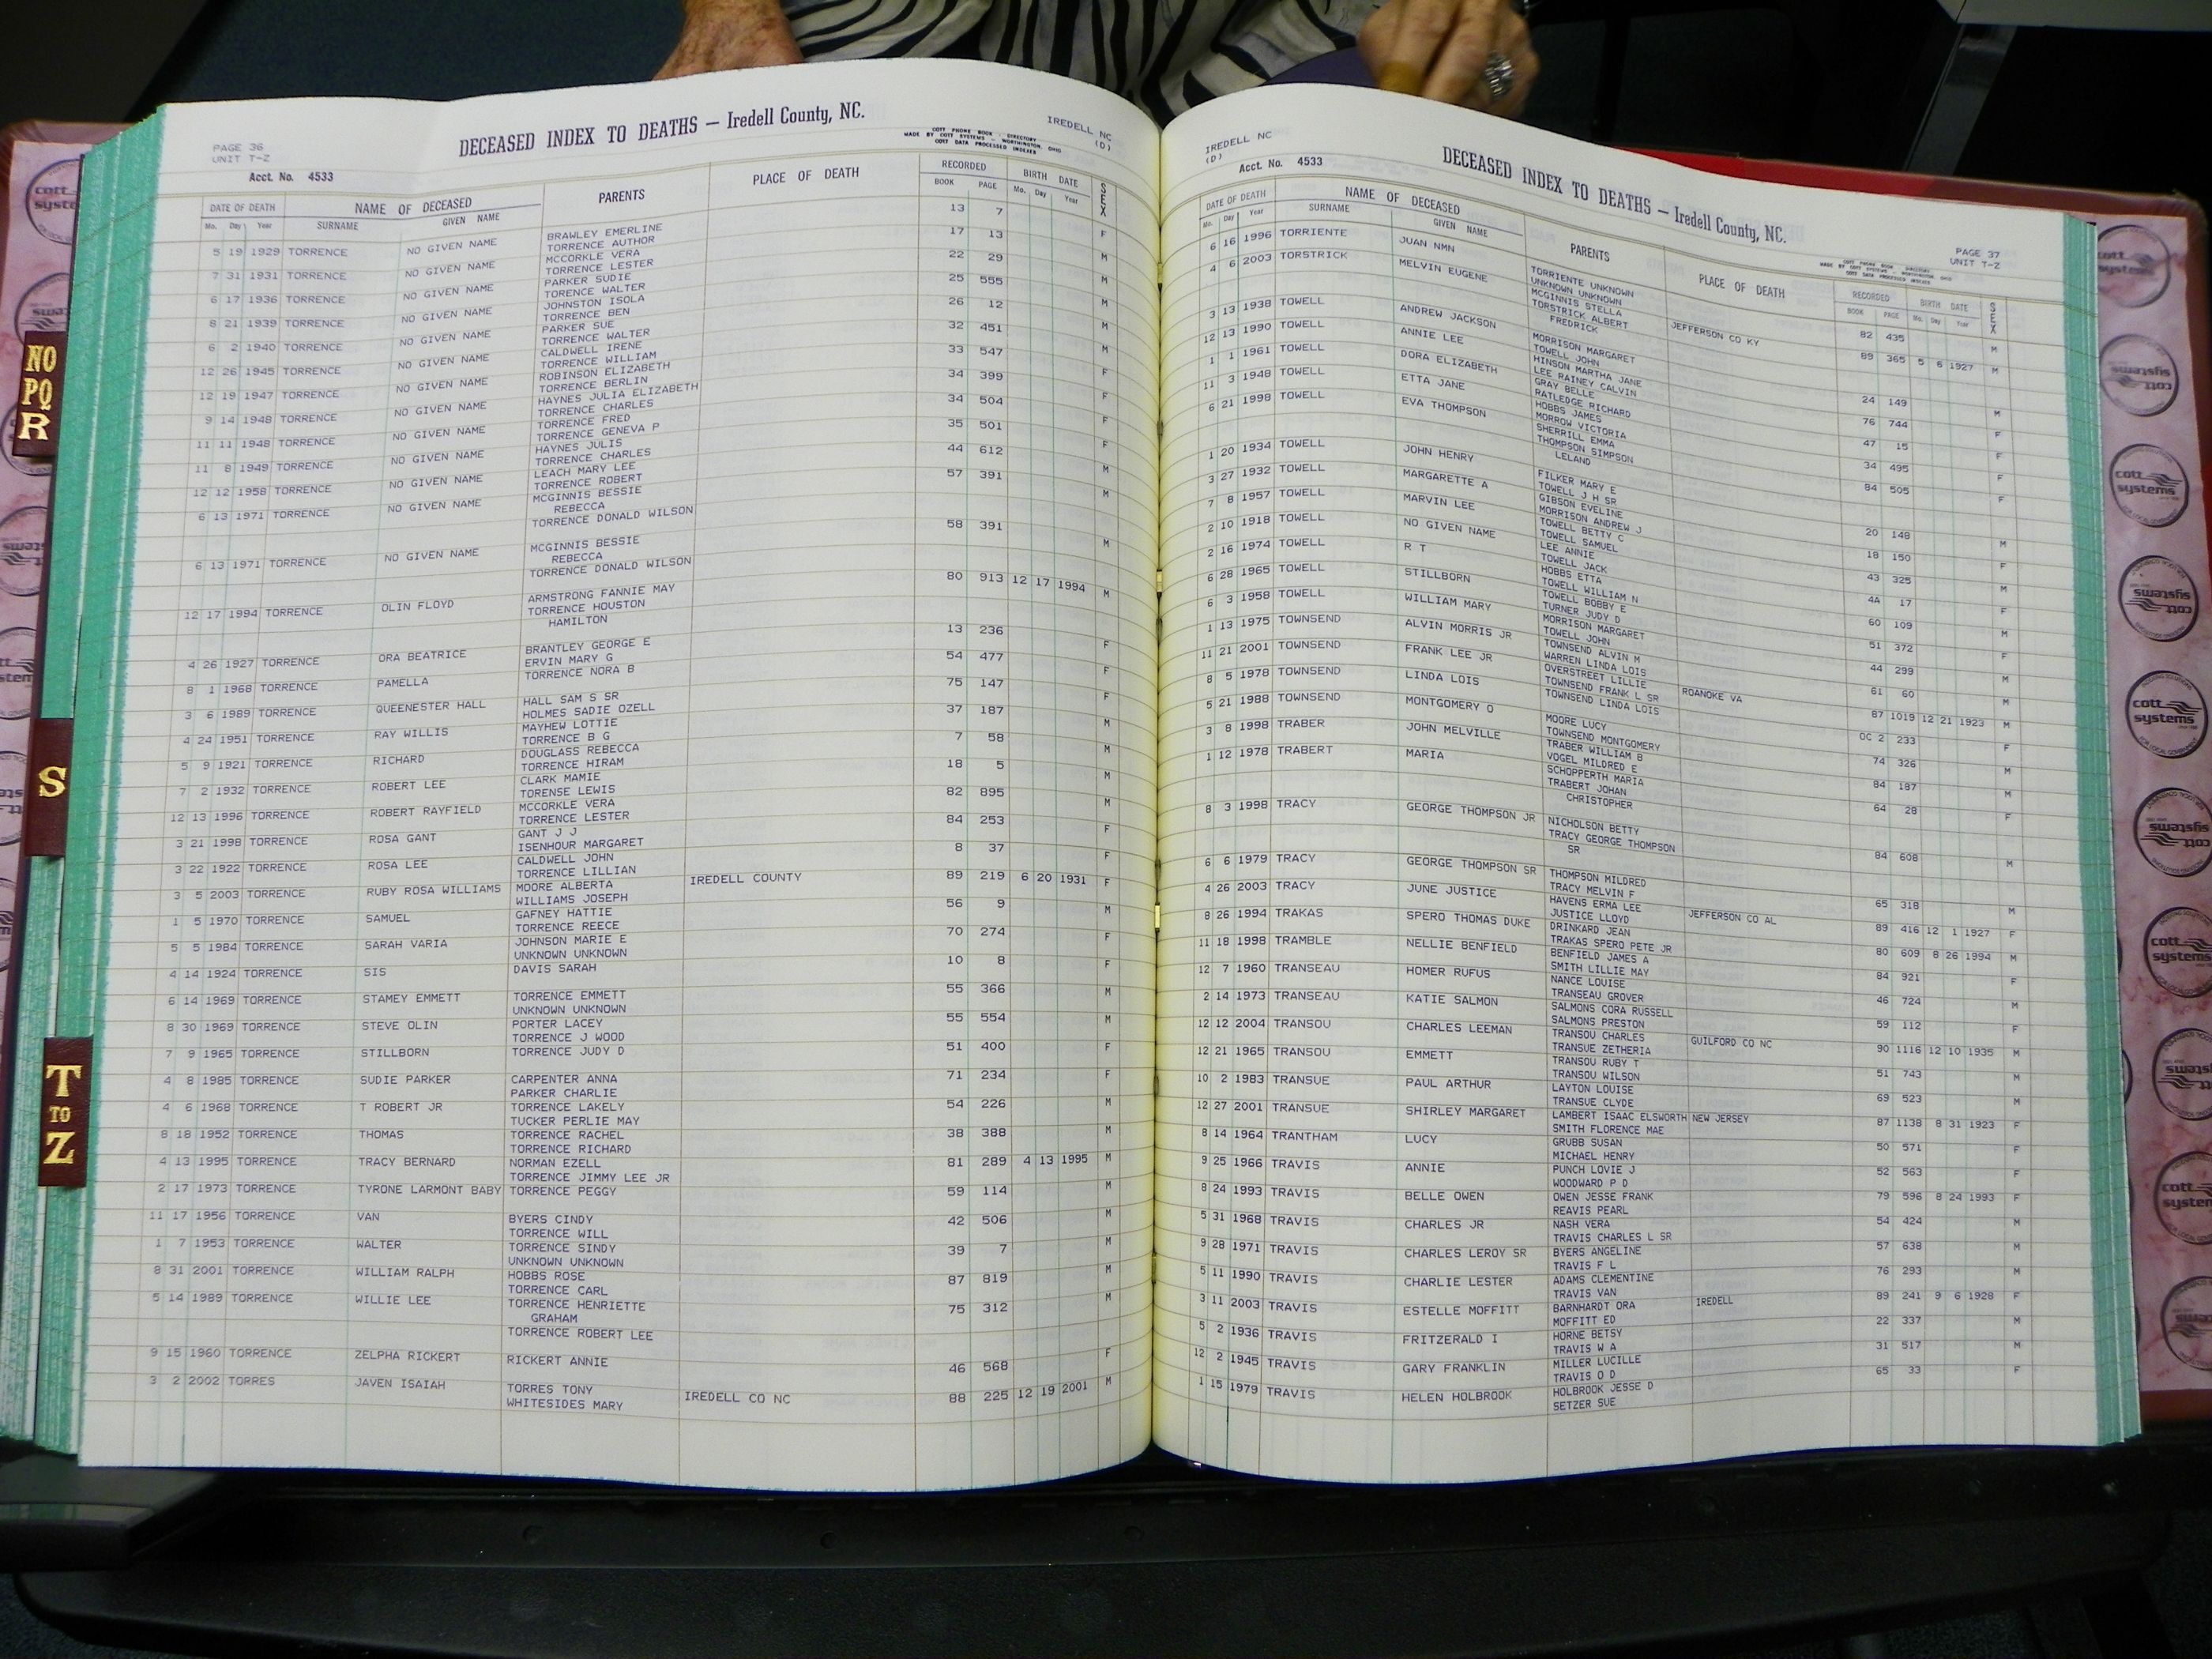 PAGE 36
UNIT T-Z
Acct. No. 4533
DECEASED INDEX TO DEATHS — Iredell County, NC.
COTT PHONE BOOK - DIRECTORY
MADE BY COTT SYSTEMS — WORTHINGTON, OHIO
COTT DATA PROCESSED INDEXES
IREDELL NC
(D)
DATE OF DEATH NAME OF DECEASED PARENTS PLACE OF DEATH RECORDED BIRTH DATE SEX
Mo. Day Year SURNAME GIVEN NAME BOOK PAGE Mo. Day Year
5 19 1929 TORRENCE NO GIVEN NAME BRAWLEY EMERLINE 13 7 F
TORRENCE AUTHOR
7 31 1931 TORRENCE NO GIVEN NAME MCCORKLE VERA 17 13 M
TORRENCE LESTER
6 17 1936 TORRENCE NO GIVEN NAME PARKER SUDIE 22 29 M
TORENCE WALTER
8 21 1939 TORRENCE NO GIVEN NAME JOHNSTON ISOLA 25 555 M
TORRENCE BEN
6 2 1940 TORRENCE NO GIVEN NAME PARKER SUE 26 12 M
TORRENCE WALTER
12 26 1945 TORRENCE NO GIVEN NAME CALDWELL IRENE 32 451 M
TORRENCE WILLIAM
12 19 1947 TORRENCE NO GIVEN NAME ROBINSON ELIZABETH 33 547 F
TORRENCE BERLIN
9 14 1948 TORRENCE NO GIVEN NAME HAYNES JULIA ELIZABETH 34 399 F
TORRENCE CHARLES
11 11 1948 TORRENCE NO GIVEN NAME TORRENCE FRED 34 504 F
TORRENCE GENEVA P
11 8 1949 TORRENCE NO GIVEN NAME HAYNES JULIS 35 501 F
TORRENCE CHARLES
12 12 1958 TORRENCE NO GIVEN NAME LEACH MARY LEE 44 612 M
TORRENCE ROBERT
6 13 1971 TORRENCE NO GIVEN NAME MCGINNIS BESSIE 57 391 M
REBECCA
TORRENCE DONALD WILSON
6 13 1971 TORRENCE NO GIVEN NAME MCGINNIS BESSIE 58 391 M
REBECCA
TORRENCE DONALD WILSON
12 17 1994 TORRENCE OLIN FLOYD ARMSTRONG FANNIE MAY 80 913 12 17 1994 M
TORRENCE HOUSTON
HAMILTON
4 26 1927 TORRENCE ORA BEATRICE BRANTLEY GEORGE E 13 236 F
ERVIN MARY G
8 1 1968 TORRENCE PAMELLA TORRENCE NORA B 54 477 F
3 6 1989 TORRENCE QUEENESTER HALL HALL SAM S SR 75 147 F
HOLMES SADIE OZELL
4 24 1951 TORRENCE RAY WILLIS MAYHEW LOTTIE 37 187 M
TORRENCE B G
5 9 1921 TORRENCE RICHARD DOUGLASS REBECCA 7 58 M
TORRENCE HIRAM
7 2 1932 TORRENCE ROBERT LEE CLARK MAMIE 18 5 M
TORENSE LEWIS
12 13 1996 TORRENCE ROBERT RAYFIELD MCCORKLE VERA 82 895 M
TORRENCE LESTER
3 21 1998 TORRENCE ROSA GANT GANT J J 84 253 F
ISENHOUR MARGARET
3 22 1922 TORRENCE ROSA LEE CALDWELL JOHN 8 37 F
TORRENCE LILLIAN
3 5 2003 TORRENCE RUBY ROSA WILLIAMS MOORE ALBERTA IREDELL COUNTY 89 219 6 20 1931 F
WILLIAMS JOSEPH
1 5 1970 TORRENCE SAMUEL GAFNEY HATTIE 56 9 M
TORRENCE REECE
5 5 1984 TORRENCE SARAH VARIA JOHNSON MARIE E 70 274 F
UNKNOWN UNKNOWN
4 14 1924 TORRENCE SIS DAVIS SARAH 10 8 F
6 14 1969 TORRENCE STAMEY EMMETT TORRENCE EMMETT 55 366 M
UNKNOWN UNKNOWN
8 30 1969 TORRENCE STEVE OLIN PORTER LACEY 55 554 M
TORRENCE J WOOD
7 9 1965 TORRENCE STILLBORN TORRENCE JUDY D 51 400 F
4 8 1985 TORRENCE SUDIE PARKER CARPENTER ANNA 71 234 F
PARKER CHARLIE
4 6 1968 TORRENCE T ROBERT JR TORRENCE LAKELY 54 226 M
TUCKER PERLIE MAY
8 18 1952 TORRENCE THOMAS TORRENCE RACHEL 38 388 M
TORRENCE RICHARD
4 13 1995 TORRENCE TRACY BERNARD NORMAN EZELL 81 289 4 13 1995 M
TORRENCE JIMMY LEE JR
2 17 1973 TORRENCE TYRONE LARMONT BABY TORRENCE PEGGY 59 114 M
11 17 1956 TORRENCE VAN BYERS CINDY 42 506 M
TORRENCE WILL
1 7 1953 TORRENCE WALTER TORRENCE SINDY 39 7 M
UNKNOWN UNKNOWN
8 31 2001 TORRENCE WILLIAM RALPH HOBBS ROSE 87 819 M
TORRENCE CARL
5 14 1989 TORRENCE WILLIE LEE TORRENCE HENRIETTE 75 312 M
GRAHAM
TORRENCE ROBERT LEE
9 15 1960 TORRENCE ZELPHA RICKERT RICKERT ANNIE 46 568 F
3 2 2002 TORRES JAVEN ISAIAH TORRES TONY IREDELL CO NC 88 225 12 19 2001 M
WHITESIDES MARY
IREDELL NC
(D)
Acct. No. 4533
DECEASED INDEX TO DEATHS — Iredell County, NC.
COTT PHONE BOOK - DIRECTORY
MADE BY COTT SYSTEMS — WORTHINGTON, OHIO
COTT DATA PROCESSED INDEXES
PAGE 37
UNIT T-Z
DATE OF DEATH NAME OF DECEASED PARENTS PLACE OF DEATH RECORDED BIRTH DATE SEX
Mo. Day Year SURNAME GIVEN NAME BOOK PAGE Mo. Day Year
6 16 1996 TORRIENTE JUAN NMN TORRIENTE UNKNOWN 82 435 M
UNKNOWN UNKNOWN
4 6 2003 TORSTRICK MELVIN EUGENE MCGINNIS STELLA JEFFERSON CO KY 89 365 5 6 1927 M
TORSTRICK ALBERT
FREDRICK
3 13 1938 TOWELL ANDREW JACKSON MORRISON MARGARET 24 149 M
TOWELL JOHN
12 13 1990 TOWELL ANNIE LEE HINSON MARTHA JANE 76 744 F
LEE RAINEY CALVIN
1 1 1961 TOWELL DORA ELIZABETH GRAY BELLE 47 15 F
RATLEDGE RICHARD
11 3 1948 TOWELL ETTA JANE HOBBS JAMES 34 495 F
MORROW VICTORIA
6 21 1998 TOWELL EVA THOMPSON SHERRILL EMMA 84 505 F
THOMPSON SIMPSON
LELAND
1 20 1934 TOWELL JOHN HENRY FILKER MARY E 20 148 M
TOWELL J H SR
3 27 1932 TOWELL MARGARETTE A GIBSON EVELINE 18 150 F
MORRISON ANDREW J
7 8 1957 TOWELL MARVIN LEE TOWELL BETTY C 43 325 M
TOWELL SAMUEL
2 10 1918 TOWELL NO GIVEN NAME LEE ANNIE 4A 17 F
TOWELL JACK
2 16 1974 TOWELL R T HOBBS ETTA 60 109 M
TOWELL WILLIAM N
6 28 1965 TOWELL STILLBORN TOWELL BOBBY E 51 372 F
TURNER JUDY D
6 3 1958 TOWELL WILLIAM MARY MORRISON MARGARET 44 299 M
TOWELL JOHN
1 13 1975 TOWNSEND ALVIN MORRIS JR TOWNSEND ALVIN M 61 60 M
WARREN LINDA LOIS
11 21 2001 TOWNSEND FRANK LEE JR OVERSTREET LILLIE ROANOKE VA 87 1019 12 21 1923 M
TOWNSEND FRANK L SR
8 5 1978 TOWNSEND LINDA LOIS TOWNSEND LINDA LOIS OC 2 233 F
5 21 1988 TOWNSEND MONTGOMERY O MOORE LUCY 74 326 M
TOWNSEND MONTGOMERY
3 8 1998 TRABER JOHN MELVILLE TRABER WILLIAM B 84 187 M
VOGEL MILDRED E
1 12 1978 TRABERT MARIA SCHOPPERTH MARIA 64 28 F
TRABERT JOHAN
CHRISTOPHER
8 3 1998 TRACY GEORGE THOMPSON JR NICHOLSON BETTY 84 608 M
TRACY GEORGE THOMPSON
SR
6 6 1979 TRACY GEORGE THOMPSON SR THOMPSON MILDRED 65 318 M
TRACY MELVIN F
4 26 2003 TRACY JUNE JUSTICE HAVENS ERMA LEE JEFFERSON CO AL 89 416 12 1 1927 F
JUSTICE LLOYD
8 26 1994 TRAKAS SPERO THOMAS DUKE DRINKARD JEAN 80 609 8 26 1994 M
TRAKAS SPERO PETE JR
11 18 1998 TRAMBLE NELLIE BENFIELD BENFIELD JAMES A 84 921 F
SMITH LILLIE MAY
12 7 1960 TRANSEAU HOMER RUFUS NANCE LOUISE 46 724 M
TRANSEAU GROVER
2 14 1973 TRANSEAU KATIE SALMON SALMONS CORA RUSSELL 59 112 F
SALMONS PRESTON
12 12 2004 TRANSOU CHARLES LEEMAN TRANSOU CHARLES GUILFORD CO NC 90 1116 12 10 1935 M
TRANSUE ZETHERIA
12 21 1965 TRANSOU EMMETT TRANSOU RUBY T 51 743 M
TRANSOU WILSON
10 2 1983 TRANSUE PAUL ARTHUR LAYTON LOUISE 69 523 M
TRANSUE CLYDE
12 27 2001 TRANSUE SHIRLEY MARGARET LAMBERT ISAAC ELSWORTH NEW JERSEY 87 1138 8 31 1923 F
SMITH FLORENCE MAE
8 14 1964 TRANTHAM LUCY GRUBB SUSAN 50 571 F
MICHAEL HENRY
9 25 1966 TRAVIS ANNIE PUNCH LOVIE J 52 563 F
WOODWARD P D
8 24 1993 TRAVIS BELLE OWEN OWEN JESSE FRANK 79 596 8 24 1993 F
REAVIS PEARL
5 31 1968 TRAVIS CHARLES JR NASH VERA 54 424 M
TRAVIS CHARLES L SR
9 28 1971 TRAVIS CHARLES LEROY SR BYERS ANGELINE 57 638 M
TRAVIS F L
5 11 1990 TRAVIS CHARLIE LESTER ADAMS CLEMENTINE 76 293 M
TRAVIS VAN
3 11 2003 TRAVIS ESTELLE MOFFITT BARNHARDT ORA IREDELL 89 241 9 6 1928 F
MOFFITT ED
5 2 1936 TRAVIS FRITZERALD I HORNE BETSY 22 337 M
TRAVIS W A
12 2 1945 TRAVIS GARY FRANKLIN MILLER LUCILLE 31 517 M
TRAVIS O D
1 15 1979 TRAVIS HELEN HOLBROOK HOLBROOK JESSE D 65 33 F
SETZER SUE
NO
PQ
R
S
T
TO
Z
cott
systems
FOR LOCAL GOVERNMENT